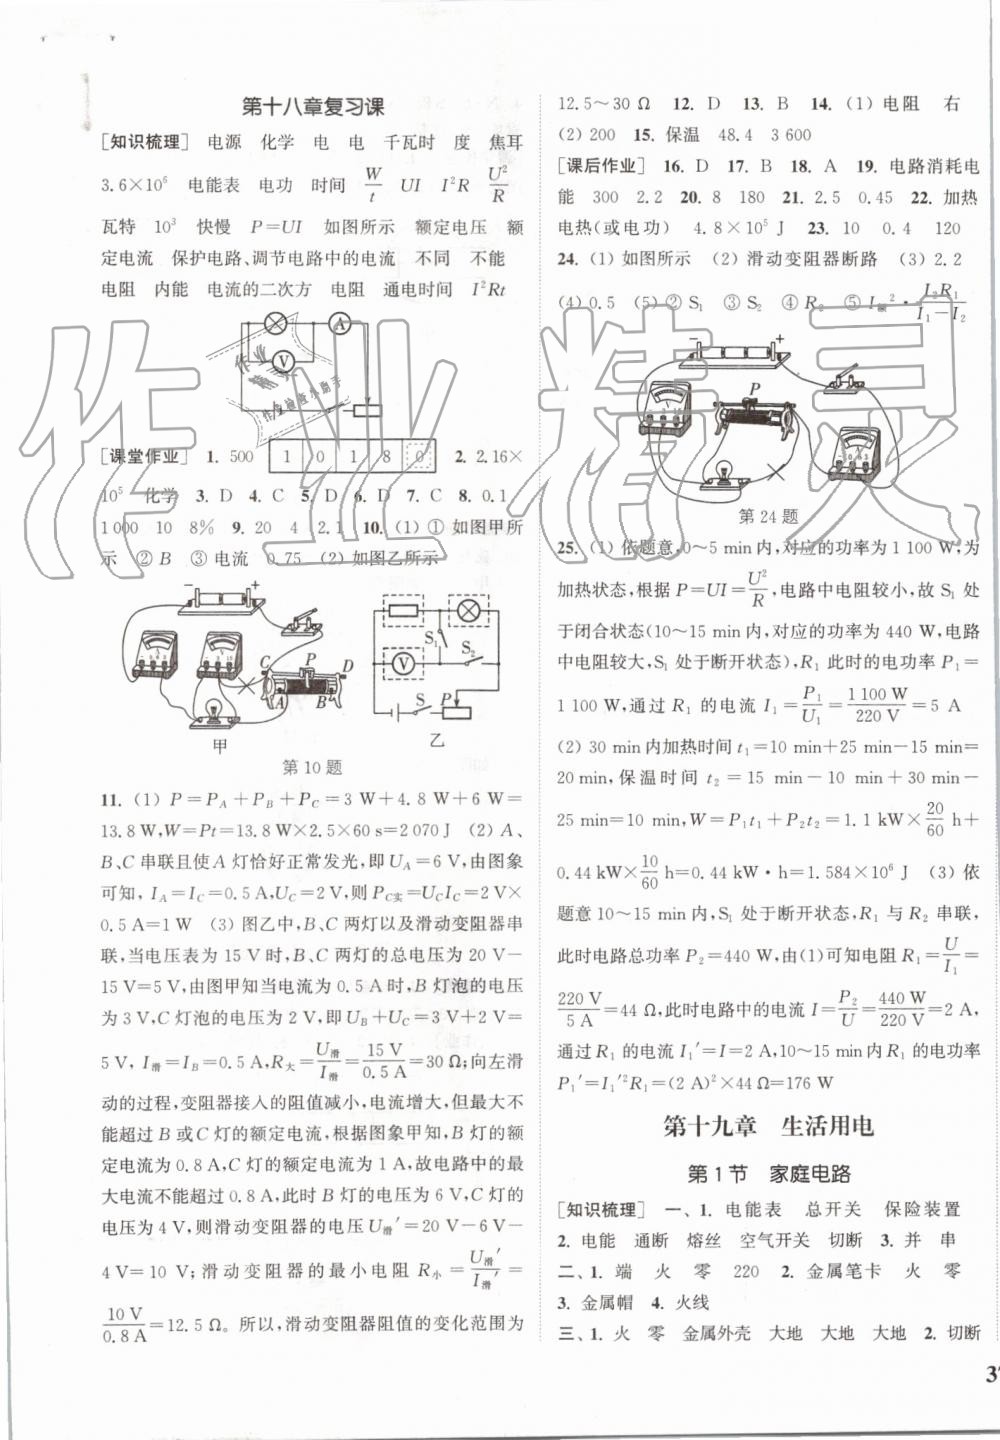 第十八章复习课
[知识梳理] 电源 化学 电 电 千瓦时 度 焦耳
3.6×10⁶ 电能表 电功 时间 W/t UI I²R U²/R
瓦特 10³ 快慢 P=UI 如图所示 额定电压 额
定电流 保护电路、调节电路中的电流 不同 不能
电阻 内能 电流的二次方 电阻 通电时间 I²Rt
A
V
[课堂作业] 1. 500 1 0 1 8 0 2. 2.16×
10⁵ 化学 3. D 4. C 5. D 6. D 7. C 8. 0.1
1 000 10 8% 9. 20 4 2.1 10. (1) ① 如图甲所
示 ② B ③ 电流 0.75 (2) 如图乙所示
甲 乙
第 10 题
11. (1) P=P_A+P_B+P_C=3 W+4.8 W+6 W=
13.8 W,W=Pt=13.8 W×2.5×60 s=2 070 J (2) A、
B、C 串联且使 A 灯恰好正常发光,即 U_A=6 V,由图象
可知, I_A=I_C=0.5 A,U_C=2 V,则 P_C实=U_C I_C=2 V×
0.5 A=1 W (3) 图乙中,B、C 两灯以及滑动变阻器串
联,当电压表为 15 V 时,B、C 两灯的总电压为 20 V-
15 V=5 V,由图甲知当电流为 0.5 A 时,B 灯泡的电压
为 3 V,C 灯泡的电压为 2 V,即 U_B+U_C=3 V+2 V=
5 V, I_滑=I_B=0.5 A,R_大=U_滑/I_滑=15 V/0.5 A=30 Ω;向左滑
动的过程,变阻器接入的阻值减小,电流增大,但最大不
能超过 B 或 C 灯的额定电流,根据图象甲知,B 灯的额
定电流为 0.8 A,C 灯的额定电流为 1 A,故电路中的最
大电流不能超过 0.8 A,此时 B 灯的电压为 6 V,C 灯的
的电压为 4 V,则滑动变阻器的电压 U_滑′=20 V-6 V-
4 V=10 V;滑动变阻器的最小电阻 R_小=U_滑′/I_滑′=
10 V/0.8 A=12.5 Ω。所以,滑动变阻器阻值的变化范围为
12.5~30 Ω 12. D 13. B 14. (1) 电阻 右
(2) 200 15. 保温 48.4 3 600
[课后作业] 16. D 17. B 18. A 19. 电路消耗电
能 300 2.2 20. 8 180 21. 2.5 0.45 22. 加热
电热(或电功) 4.8×10⁵ J 23. 10 0.4 120
24. (1) 如图所示 (2) 滑动变阻器断路 (3) 2.2
(4) 0.5 (5) ② S₁ ③ S₂ ④ R₂ ⑤ I_额²·I₂R₁/(I₁-I₂)
第 24 题
25. (1) 依题意,0~5 min 内,对应的功率为 1 100 W,为
加热状态,根据 P=UI=U²/R,电路中电阻较小,故 S₁ 处
于闭合状态(10~15 min 内,对应的功率为 440 W,电路
中电阻较大,S₁ 处于断开状态),R₁ 此时的电功率 P₁=
1 100 W,通过 R₁ 的电流 I₁=P₁/U₁=1 100 W/220 V=5 A
(2) 30 min 内加热时间 t₁=10 min+25 min-15 min=
20 min,保温时间 t₂=15 min-10 min+30 min-
25 min=10 min,W=P₁t₁+P₂t₂=1.1 kW×20/60 h+
0.44 kW×10/60 h=0.44 kW·h=1.584×10⁶ J (3) 依
题意 10~15 min 内,S₁ 处于断开状态,R₁ 与 R₂ 串联,
此时电路总功率 P₂=440 W,由(1)可知电阻 R₁=U/I₁=
220 V/5 A=44 Ω,此时电路中的电流 I=P₂/U=440 W/220 V=2 A,
通过 R₁ 的电流 I₁′=I=2 A,10~15 min 内 R₁ 的电功率
P₁′=I₁′²R₁=(2 A)²×44 Ω=176 W
第十九章 生活用电
第 1 节 家庭电路
[知识梳理] 一、1. 电能表 总开关 保险装置
2. 电能 通断 熔丝 空气开关 切断 3. 并 串
二、1. 端 火 零 220 2. 金属笔卡 火 零
3. 金属帽 4. 火线
三、1. 火 零 金属外壳 大地 大地 大地 2. 切断
作业精灵